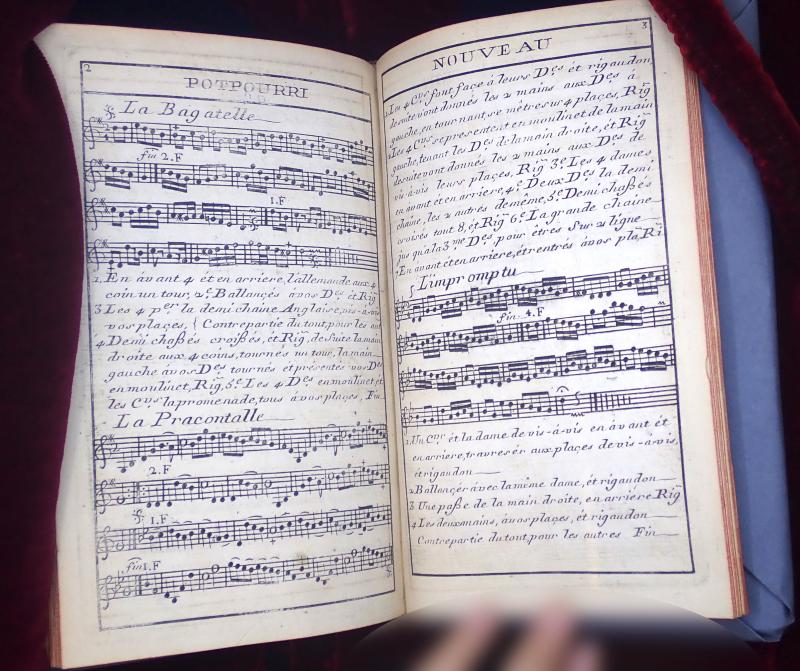 2
POTPOURRI
La Bagatelle
fin 2.F
1.F
1. En avant 4 ét en arriere, l'allemande aux 4
coin un tour, 2.e Ballançés àvos D.es ét Rig.
3 Les 4 p.er la demi chaine Anglaise, vis-à-vis
vos plaçes, { Contrepartie du tout, pour les aut
4 Demi chaßés croißés, ét Rig.n, de suite la main
droite aux 4 coins, tournés un tour, la main
gauche àvos D.es tournés et présentés vos D.es
en moulinet, Rig. 5.e Les 4 D.es en moulinet et
les C.ers la promenade, tous à vos plaçes, Fin
La Pracontalle
2.F
1.F
fin 1.F
NOUVEAU
3
1. Les 4 C.ers font façe à leurs D.es ét rigaudon,
de suite vont donnés les 2 mains aux D.es à
gauche, en tournant se métre sur 4 plaçes, Rig
2 Les 4 C.ers se presentent en moulinet de la main
gauche, tenant les D.es de la main droite, ét Rig.n
de suite vont donnés les 2 mains aux D.es de
vis-à-vis leurs plaçes, Rig.n 3.e Les 4 dames
en àvant ét en arriere, 4.e Deux D.es la demi
chaine, les 2 autres demême, 5.e Demi chaßés
croisés tout 8, ét Rig.n 6.e La grande chaine
jus qu'à la 3.me D.es pour étres sur 2 ligne
7 En avant ét en arriere, ét rentrés àvos pla, Ri
L'impromptu
fin 4.F
1. Un C.er ét la dame de vis-à-vis en àvant ét
en arriere, travreser aux plaçes de vis-à-vis,
ét rigaudon
2 Ballançér avec la même dame, ét rigaudon
3 Une paße de la main droite, en arriere Rig.
4 Les deux mains, àvos plaçes, ét rigaudon
Contrepartie du tout, pour les autres Fin